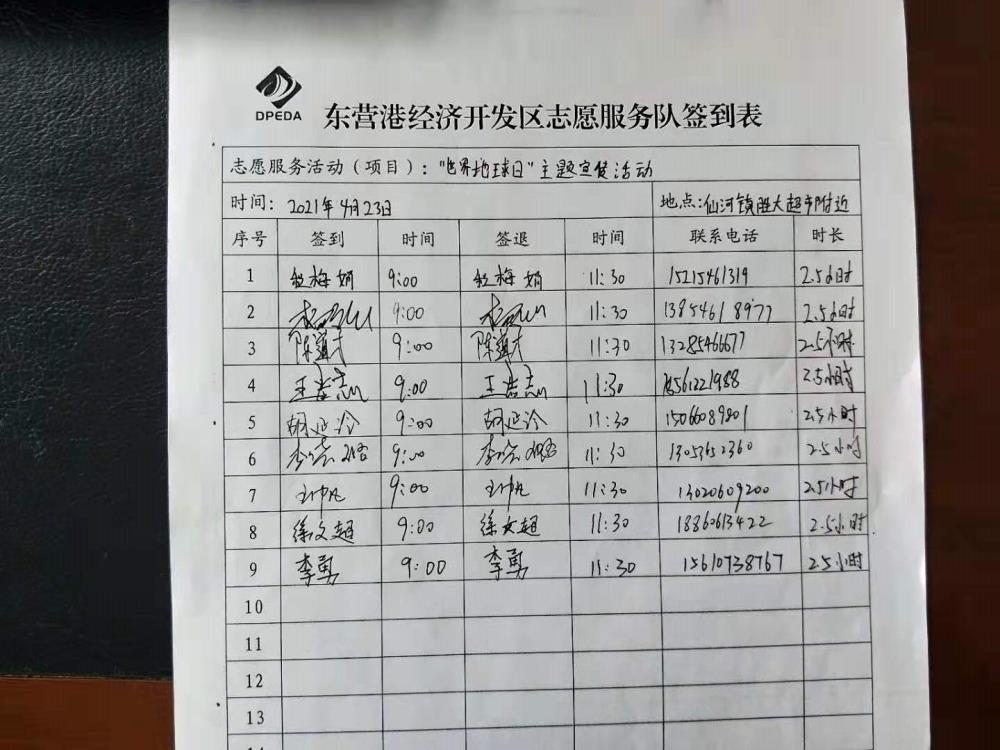 DPEDA
东营港经济开发区志愿服务队签到表
志愿服务活动（项目）："世界地球日"主题宣传活动
时间： 2021年4月23日 地点：仙河镇胜大超市附近
序号 签到 时间 签退 时间 联系电话 时长
1 梅娟 9:00 梅娟 11:30 15215461319 2.5小时
2 9:00 11:30 13854618977 2.5小时
3 陈 9:00 陈 11:30 13285466677 2.5小时
4 王志 9:00 王志 11:30 18561221988 2.5小时
5 胡延冷 9:00 胡延冷 11:30 15066089801 2.5小时
6 李 9:00 李 11:30 13053652360 2.5小时
7 9:00 11:30 13020609200 2.5小时
8 徐文超 9:00 徐文超 11:30 18860613422 2.5小时
9 李勇 9:00 李勇 11:30 15610738767 2.5小时
10
11
12
13